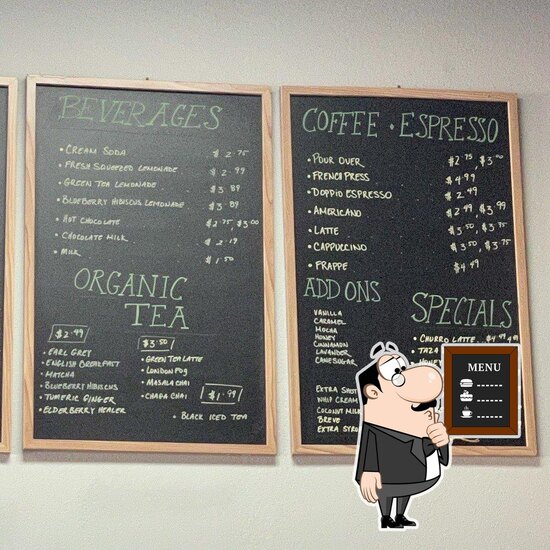 BEVERAGES
• CREAM SODA $ 2.75
• FRESH SQUEEZED LEMONADE $ 2.99
• GREEN TEA LEMONADE $ 3.89
• BLUEBERRY HIBISCUS LEMONADE $ 3.89
• HOT CHOCOLATE $ 2.75, $3.00
• CHOCOLATE MILK $ 2.19
• MILK $ 1.50
ORGANIC
TEA
$2.99
• EARL GREY
• ENGLISH BREAKFAST
• MATCHA
• BLUEBERRY HIBISCUS
• TUMERIC GINGER
• ELDERBERRY HEALER
$3.50
• GREEN TEA LATTE
• LONDON FOG
• MASALA CHAI
• CHAGA CHAI
$1.99
• BLACK ICED TEA
COFFEE • ESPRESSO
• POUR OVER $2.75, $3.00
• FRENCH PRESS $4.99
• DOPPIO ESPRESSO $ 2.49
• AMERICANO $2.99, $3.99
• LATTE $3.50, $3.75
• CAPPUCCINO $3.50, $3.75
• FRAPPE $4.49
ADD ONS
VANILLA
CARAMEL
MOCHA
HONEY
CINNAMON
LAVANDER
CANE SUGAR
EXTRA SHOT
WHIP CREAM
COCONUT MILK
BREVE
EXTRA STRO
SPECIALS
• CHURRO LATTE
• TAZA
• HONEY
MENU